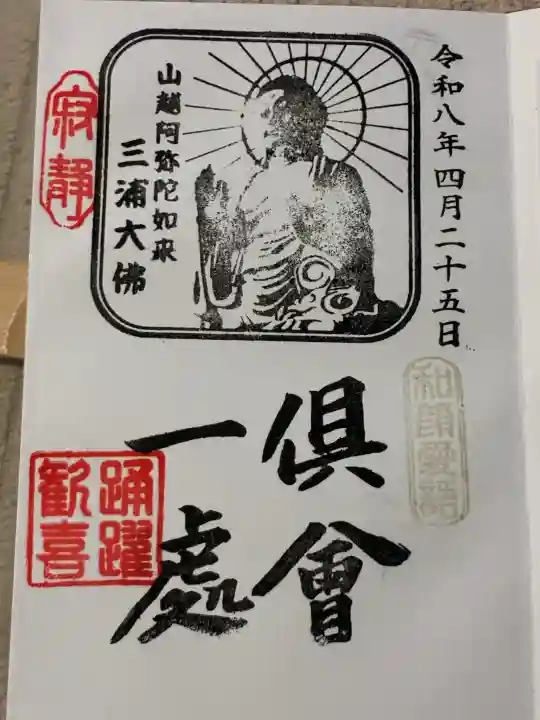 令和八年四月二十五日
山越阿弥陀如来
三浦大佛
寂靜
和顔愛語
倶會
一處
踊躍
歓喜